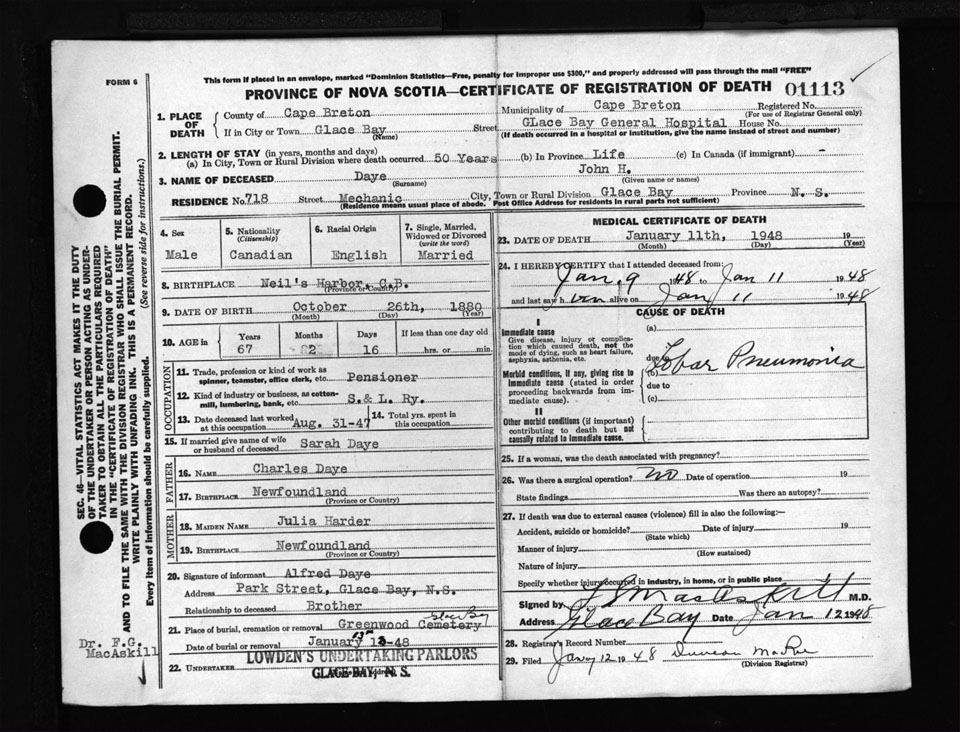 FORM 6
This form if placed in an envelope, marked "Dominion Statistics—Free, penalty for improper use $300," and properly addressed will pass through the mail "FREE"
PROVINCE OF NOVA SCOTIA—CERTIFICATE OF REGISTRATION OF DEATH 01113
1. PLACE OF DEATH
County of Cape Breton Municipality of Cape Breton Registered No.
(For use of Registrar General only)
If in City or Town Glace Bay Street Glace Bay General Hospital House No.
(Name) (If death occurred in a hospital or institution, give the name instead of street and number)
2. LENGTH OF STAY (in years, months and days)
(a) In City, Town or Rural Division where death occurred 50 Years (b) In Province Life (c) In Canada (if immigrant) -
3. NAME OF DECEASED Daye John H.
(Surname) (Given name or names)
RESIDENCE No. 718 Street Mechanic City, Town or Rural Division Glace Bay Province N. S.
(Residence means usual place of abode. Post Office Address for residents in rural parts not sufficient)
4. Sex
Male
5. Nationality
(Citizenship)
Canadian
6. Racial Origin
English
7. Single, Married, Widowed or Divorced
(write the word)
Married
8. BIRTHPLACE Neil's Harbor, C.B.
(Province or Country)
9. DATE OF BIRTH October 26th, 1880
(Month) (Day) (Year)
10. AGE in Years Months Days If less than one day old
67 2 16 hrs. or min.
OCCUPATION
11. Trade, profession or kind of work as
spinner, teamster, office clerk, etc. Pensioner
12. Kind of industry or business, as cotton-
mill, lumbering, bank, etc. S. & L. Ry.
13. Date deceased last worked
at this occupation Aug. 31-47
14. Total yrs. spent in
this occupation
15. If married give name of wife
or husband of deceased Sarah Daye
FATHER
16. NAME Charles Daye
17. BIRTHPLACE Newfoundland
(Province or Country)
MOTHER
18. MAIDEN NAME Julia Harder
19. BIRTHPLACE Newfoundland
(Province or Country)
20. Signature of informant Alfred Daye
Address Park Street, Glace Bay, N.S.
Relationship to deceased Brother
21. Place of burial, cremation or removal Greenwood Cemetery Glace Bay
Date of burial or removal January 13-48
22. UNDERTAKER LOWDEN'S UNDERTAKING PARLORS
GLACE BAY, N. S.
MEDICAL CERTIFICATE OF DEATH
23. DATE OF DEATH January 11th, 1948 19
(Month) (Day) (Year)
24. I HEREBY CERTIFY that I attended deceased from:
Jan. 9 1948 to Jan 11 1948
and last saw him alive on Jan 11 1948
CAUSE OF DEATH
I
Immediate cause
Give disease, injury or complica-
tion which caused death, not the
mode of dying, such as heart failure,
asphyxia, asthenia, etc.
(a)
due to
Lobar Pneumonia
Morbid conditions, if any, giving rise to
immediate cause (stated in order
proceeding backwards from im-
mediate cause).
(b)
due to
(c)
II
Other morbid conditions (if important)
contributing to death but not
causally related to immediate cause.
25. If a woman, was the death associated with pregnancy?
26. Was there a surgical operation? no Date of operation 19
State findings Was there an autopsy?
27. If death was due to external causes (violence) fill in also the following:—
Accident, suicide or homicide? Date of injury 19
(State which)
Manner of injury
(How sustained)
Nature of injury
Specify whether injury occurred in industry, in home, or in public place
Signed by MacAskill M.D.
Address Glace Bay Date Jan 12 1948
28. Registrar's Record Number
29. Filed Jany 12 1948 Duncan MacRae
(Division Registrar)
SEC. 46—VITAL STATISTICS ACT MAKES IT THE DUTY
OF THE UNDERTAKER OR PERSON ACTING AS UNDER-
TAKER TO OBTAIN ALL THE PARTICULARS REQUIRED
IN THE "CERTIFICATE OF REGISTRATION OF DEATH"
AND TO FILE THE SAME WITH THE DIVISION REGISTRAR WHO SHALL ISSUE THE BURIAL PERMIT.
WRITE PLAINLY WITH UNFADING INK. THIS IS A PERMANENT RECORD.
Every item of information should be carefully supplied. (See reverse side for instructions.)
Dr. F.G.
MacAskill